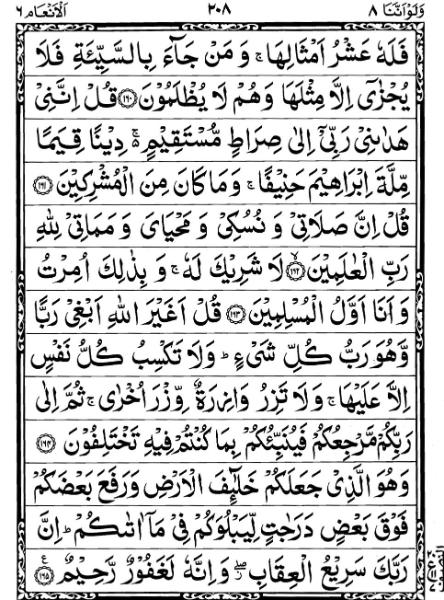 وَلَوْ اَنَّنَا ٨ ٢٠٨ اَلْاَنْعَام ٦
فَلَهٗ عَشْرُ اَمْثَالِهَا ۚ وَ مَنْ جَآءَ بِالسَّيِّئَةِ فَلَا
يُجْزٰٓى اِلَّا مِثْلَهَا وَ هُمْ لَا يُظْلَمُوْنَ ﴿۱۶۰﴾ قُلْ اِنَّنِيْ
هَدٰىنِيْ رَبِّيْۤ اِلٰى صِرَاطٍ مُّسْتَقِيْمٍ ۚ۬ دِيْنًا قِيَمًا
مِّلَّةَ اِبْرٰهِيْمَ حَنِيْفًا ۚ وَ مَا كَانَ مِنَ الْمُشْرِكِيْنَ ﴿۱۶۱﴾
قُلْ اِنَّ صَلَاتِيْ وَ نُسُكِيْ وَ مَحْيَايَ وَ مَمَاتِيْ لِلّٰهِ
رَبِّ الْعٰلَمِيْنَ ۙ﴿۱۶۲﴾ لَا شَرِيْكَ لَهٗ ۚ وَ بِذٰلِكَ اُمِرْتُ
وَ اَنَا اَوَّلُ الْمُسْلِمِيْنَ ﴿۱۶۳﴾ قُلْ اَغَيْرَ اللّٰهِ اَبْغِيْ رَبًّا
وَّ هُوَ رَبُّ كُلِّ شَيْءٍ ؕ وَ لَا تَكْسِبُ كُلُّ نَفْسٍ
اِلَّا عَلَيْهَا ۚ وَ لَا تَزِرُ وَازِرَةٌ وِّزْرَ اُخْرٰى ۚ ثُمَّ اِلٰى
رَبِّكُمْ مَّرْجِعُكُمْ فَيُنَبِّئُكُمْ بِمَا كُنْتُمْ فِيْهِ تَخْتَلِفُوْنَ ﴿۱۶۴﴾
وَ هُوَ الَّذِيْ جَعَلَكُمْ خَلٰٓئِفَ الْاَرْضِ وَ رَفَعَ بَعْضَكُمْ
فَوْقَ بَعْضٍ دَرَجٰتٍ لِّيَبْلُوَكُمْ فِيْ مَاۤ اٰتٰىكُمْ ؕ اِنَّ
رَبَّكَ سَرِيْعُ الْعِقَابِ ۖ وَ اِنَّهٗ لَغَفُوْرٌ رَّحِيْمٌ ﴿۱۶۵﴾ ع